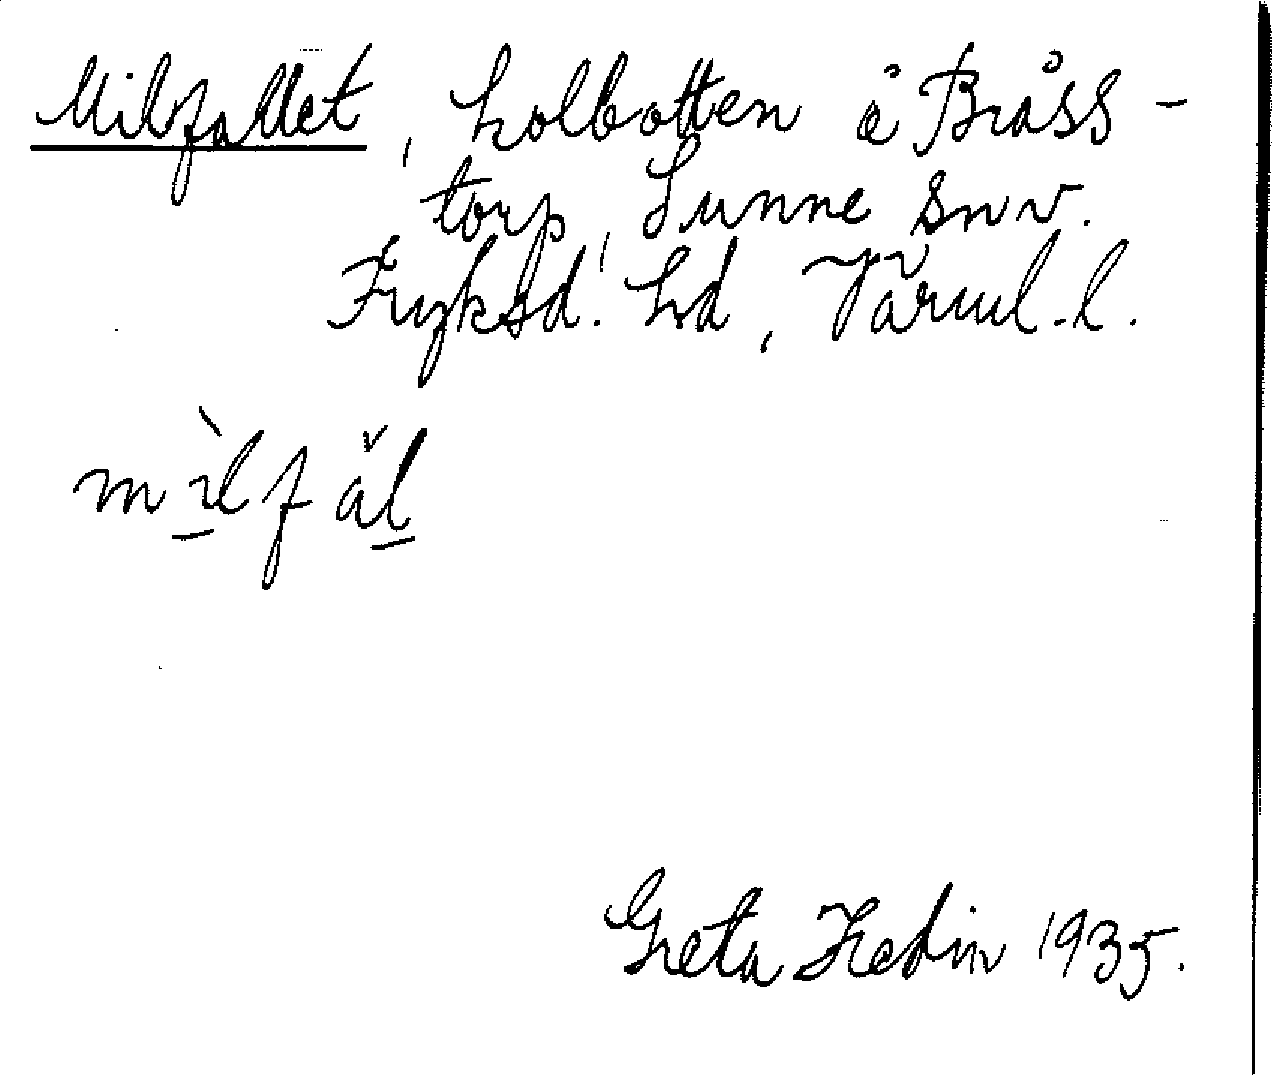 Milfallet, kolbotten å Bråss-
torp, Sunne snv.
Fryksd. hd, Värml. l.
mìlfăl
Greta Hedin 1935.